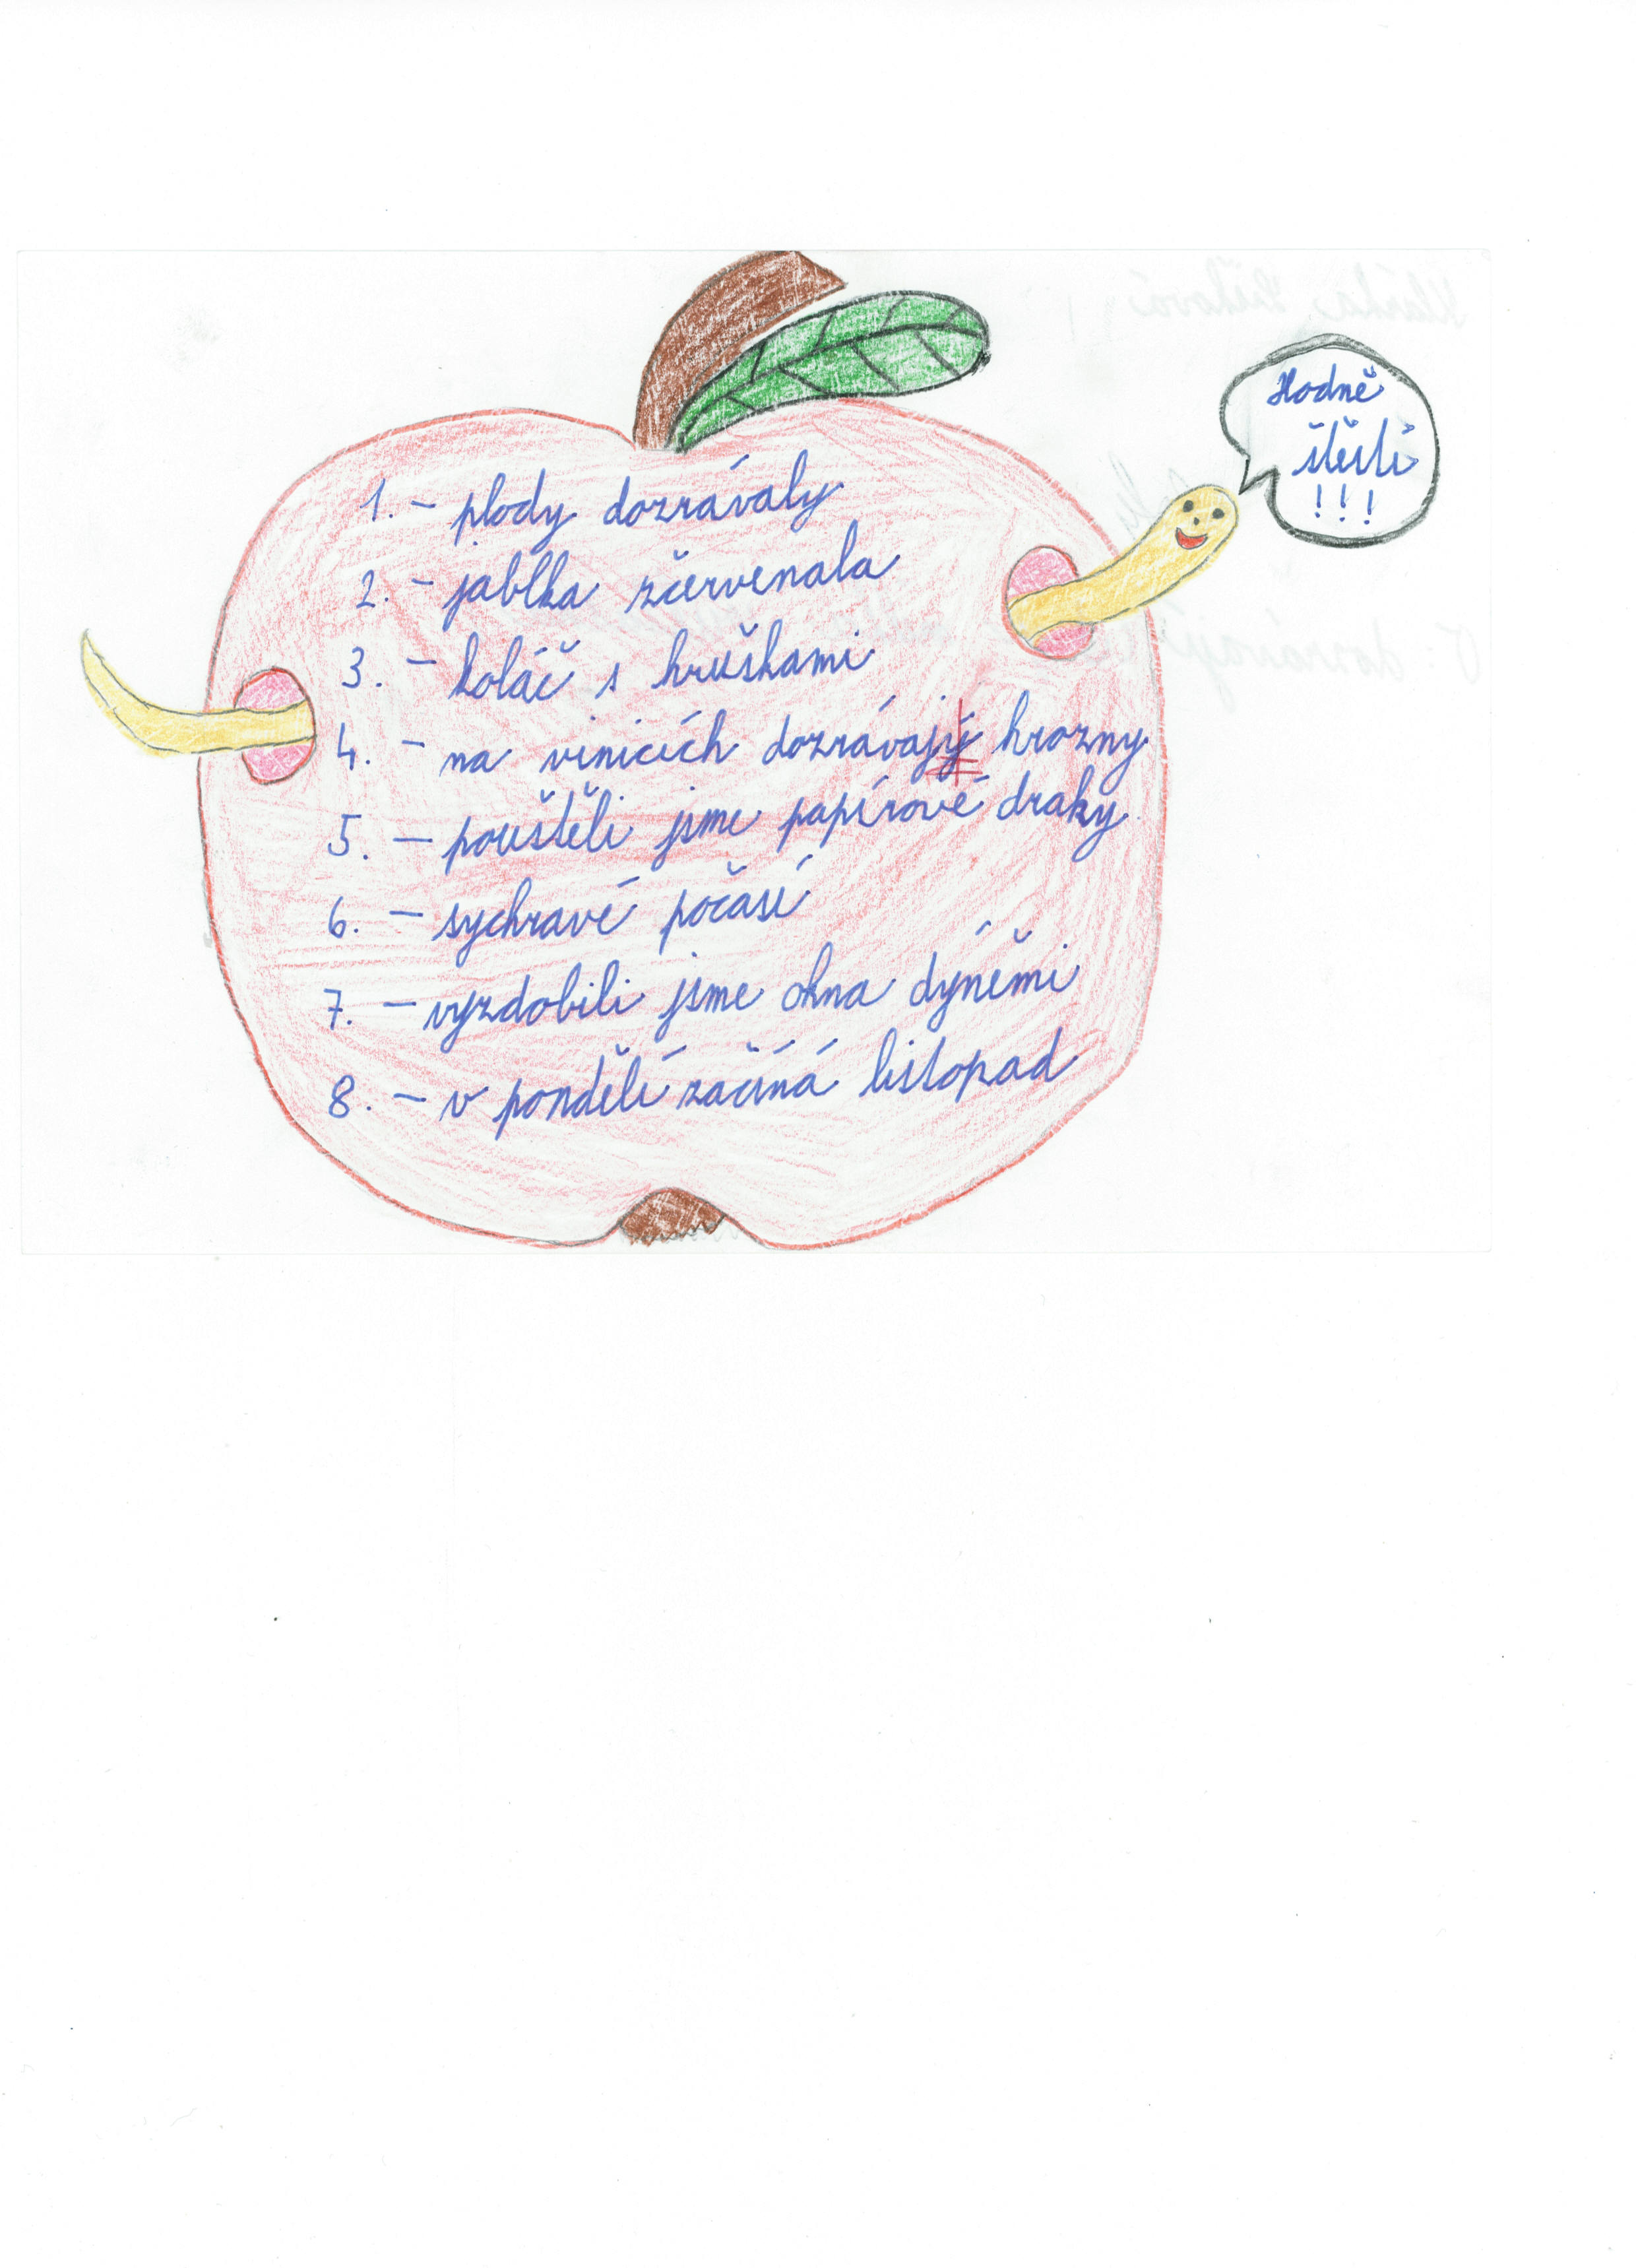 Hodně
štěstí
!!!
1. - plody dozrávaly
2. - jablka zčervenala
3. - koláč s hruškami
4. - na vinicích dozrávajý hrozny
5. - pouštěli jsme papírové draky
6. - sychravé počasí
7. - vyzdobili jsme okna dýněmi
8. - v pondělí začíná listopad